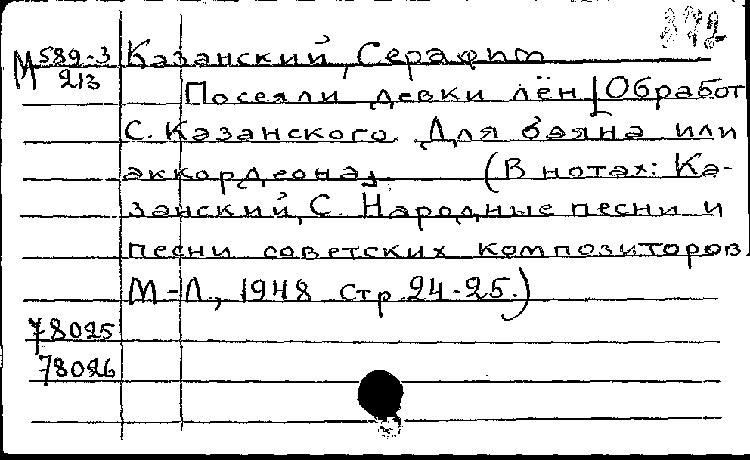 372
М 589-3 Казанский, Серафим
213
Посеяли девки лён [Обработ
С. Казанского. Для баяна или
аккордеона]. (В нотах: Ка-
занский, С. Народные песни и
песни советских композиторов
М-Л., 1948 Стр 24-25.)
78025
78026